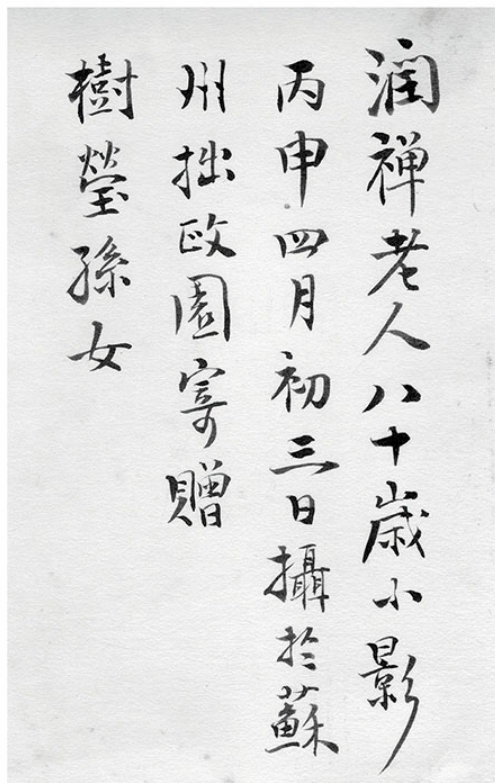 潤禅老人八十歲小影
丙申四月初三日攝於蘇
州拙政園寄贈
樹瑩孫女